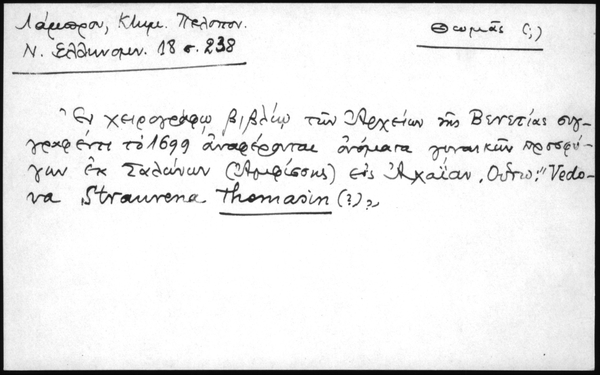 Λάμπρου, Κτημ. Πελοπον.
Θωμᾶς (;)
Ν. Ἑλληνομν. 18 σ. 238
Ἐν χειρογράφῳ βιβλίῳ τῶν Ἀρχείων τῆς Βενετίας συγ-
γραφέντι τὸ 1699 ἀναφέρονται ὀνόματα γυναικῶν προσφύ-
γων ἐκ Σαλώνων (Ἀμφίσσης) εἰς Ἀχαΐαν. Οὕτω: "Vedo-
va Stravrena Thomasin (?)„